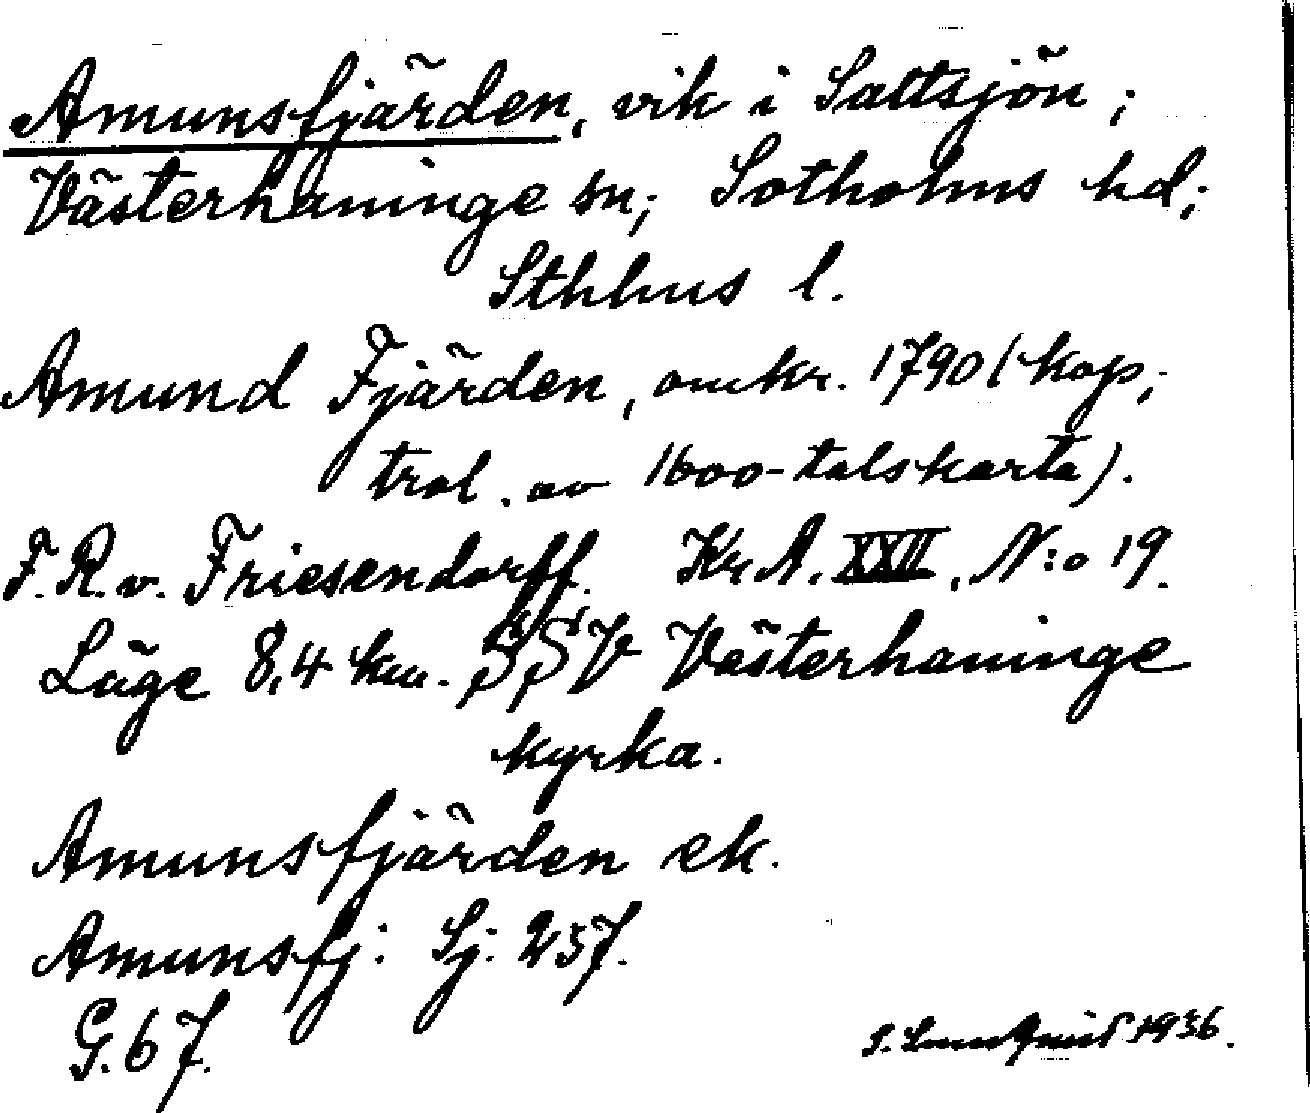 Amunsfjärden, vik i Saltsjön;
Västerhaninge sn; Sotholms hd;
Sthlms l.
Amund Fjärden, omkr. 1790 (kop,
trol. av 1600-talskarta).
F. R. v. Friesendorff. Kr. A. XXII, N:o 19.
Läge 8,4 km. SSV Västerhaninge
kyrka.
Amunsfjärden ek.
Amunsfj: Sj: 257.
G. 67.
S. 1936.